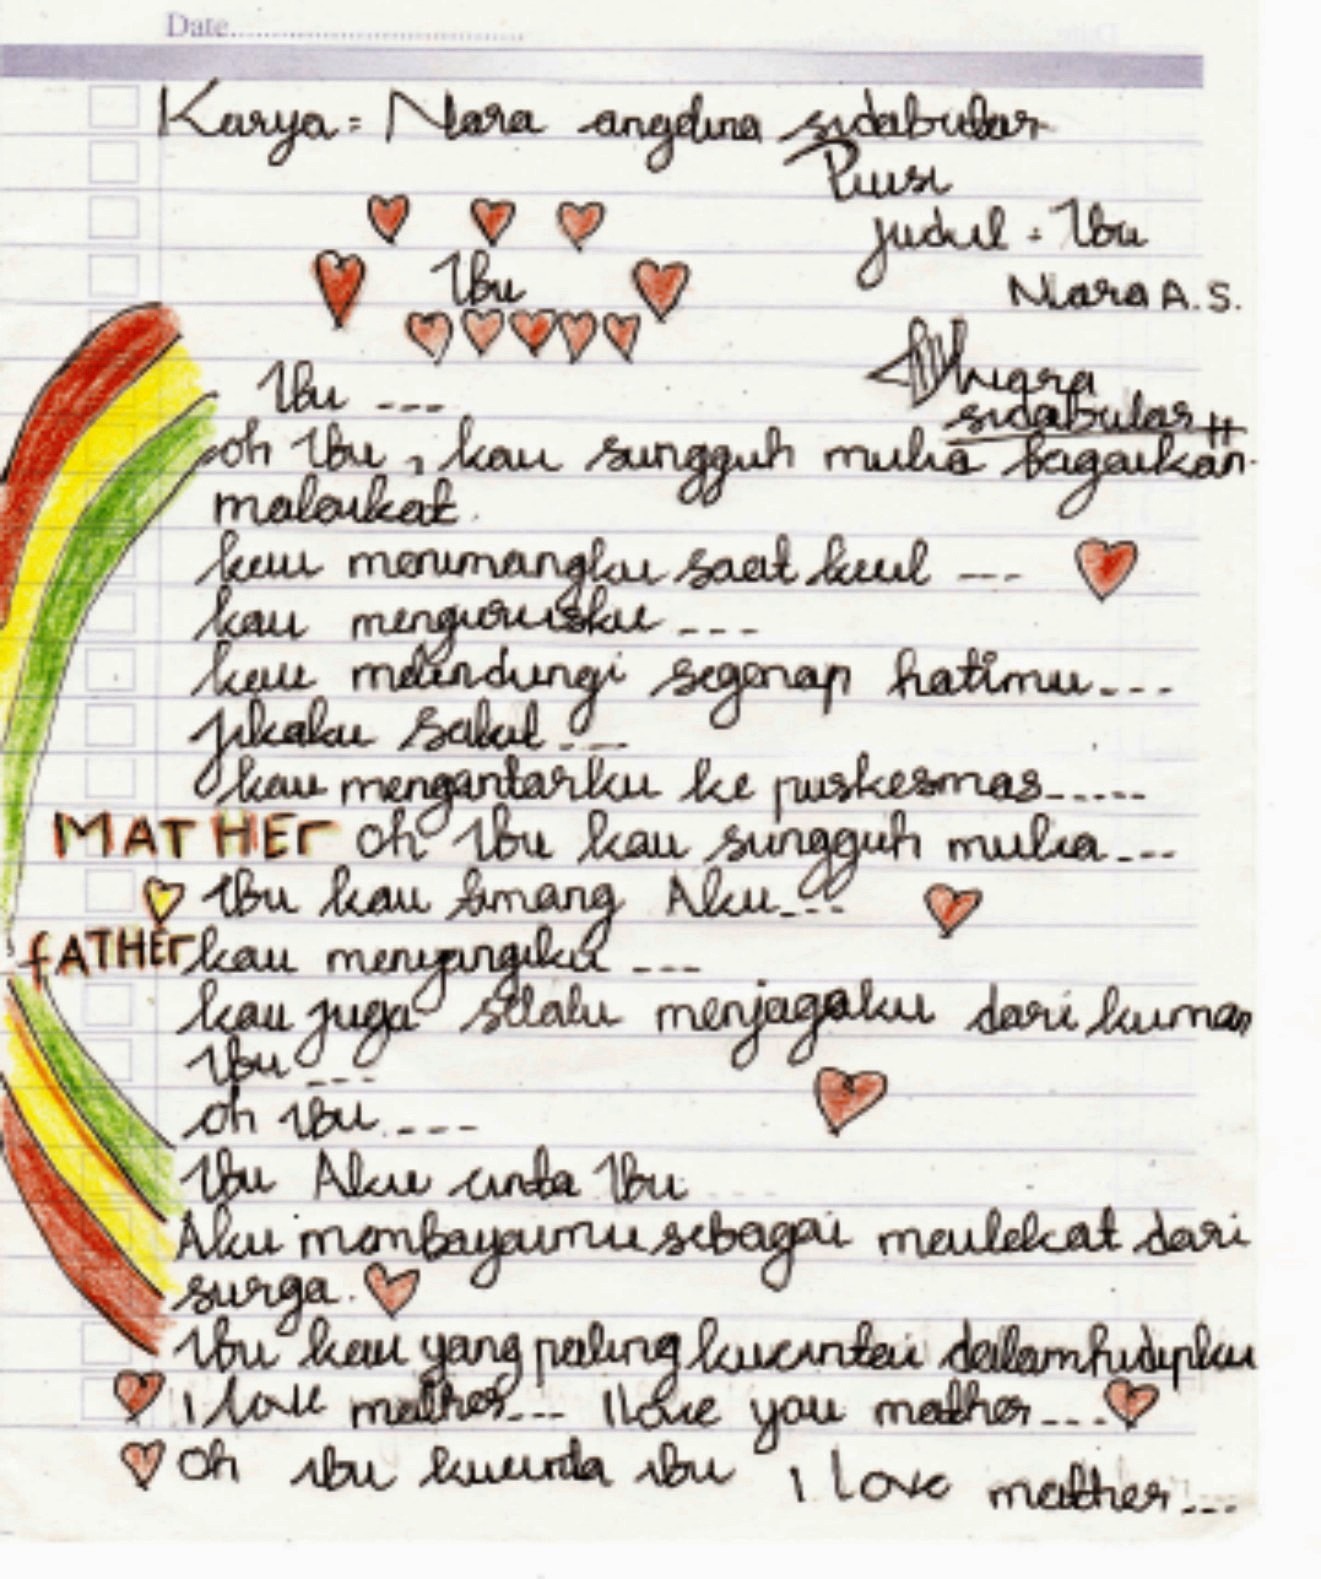 Date
Karya = Nara angelina sidabutar
Puisi
judul = Ibu
Ibu
Nara A. S.
Ibu ---
sidabutar
oh Ibu, kau sungguh mulia bagaikan
malaikat.
kau menimangku saat kecil ---
kau mengurusku ---
kau melindungi segenap hatimu ---
jikaku sakit ---
kau mengantarku ke puskesmas -----
MATHEr oh Ibu kau sungguh mulia ---
Ibu kau timang Aku ---
fATHEr kau menyangiku ---
kau juga selalu menjagaku dari kuman
Ibu ---
oh ibu ----
Ibu Aku cinta Ibu
Aku membayaimu sebagai meulekat dari
surga.
Ibu kau yang paling kucintai dalam hidupku
I love mather --- I love you mather ---
Oh ibu kucinta ibu I love mather ---